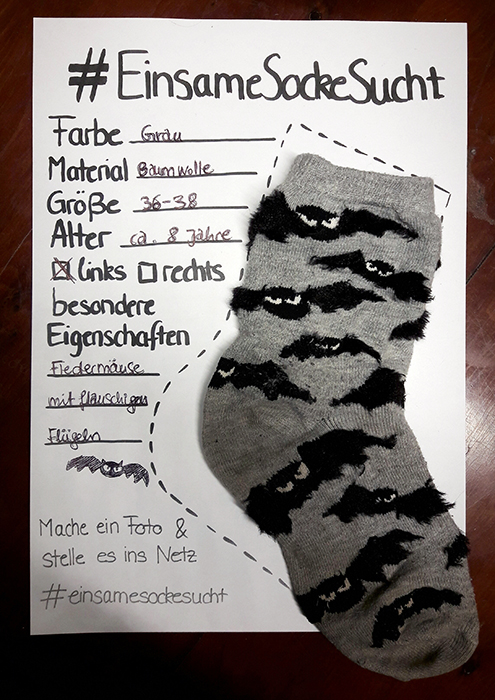 #EinsameSockeSucht
Farbe Grau
Material Baumwolle
Größe 36-38
Alter ca. 8 Jahre
☒ links ☐ rechts
besondere
Eigenschaften
Fledermäuse
mit flauschigen
Flügeln
Mache ein Foto &
stelle es ins Netz
#einsamesockesucht